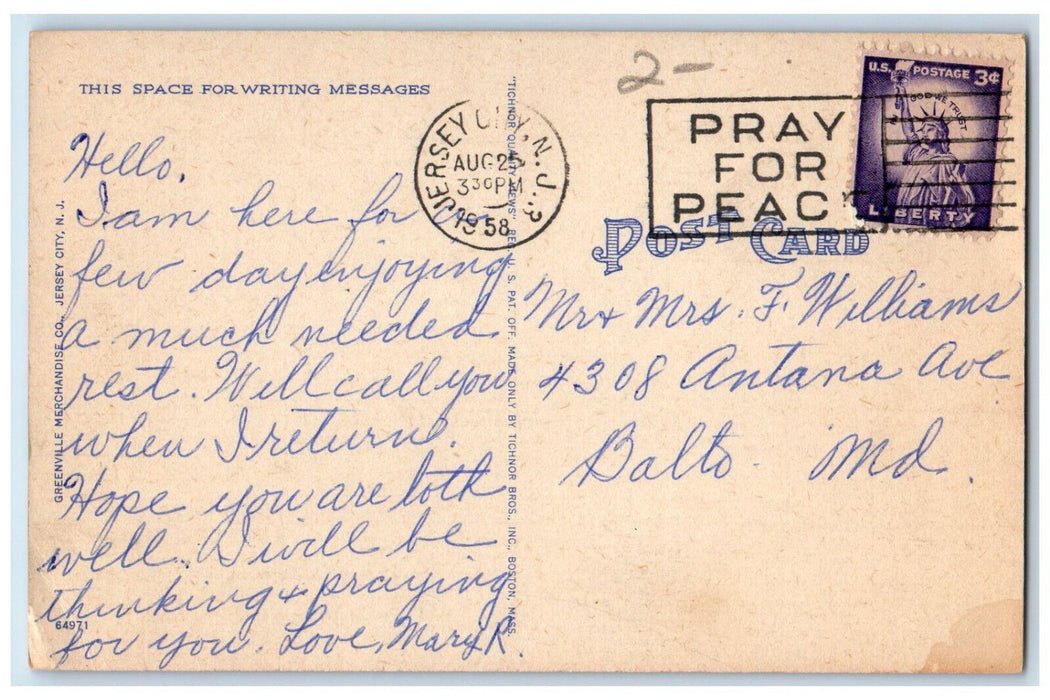 THIS SPACE FOR WRITING MESSAGES
Hello,
I am here for a
few day enjoying
a much needed
rest. Will call you
when I return.
Hope you are both
well. I will be
thinking & praying
for you. Love, Mary R.
64971
GREENVILLE MERCHANDISE CO., JERSEY CITY, N. J.
"TICHNOR QUALITY VIEWS" REG. U. S. PAT. OFF. MADE ONLY BY TICHNOR BROS., INC., BOSTON, MASS.
JERSEY CITY, N. J. 3
AUG 25
3 30 PM
1958
2-
PRAY
FOR
PEAC
U.S. POSTAGE 3¢
IN GOD WE TRUST
LIBERTY
POST CARD
Mr + Mrs. F. Williams
4308 Antana Ave
Balto. Md.